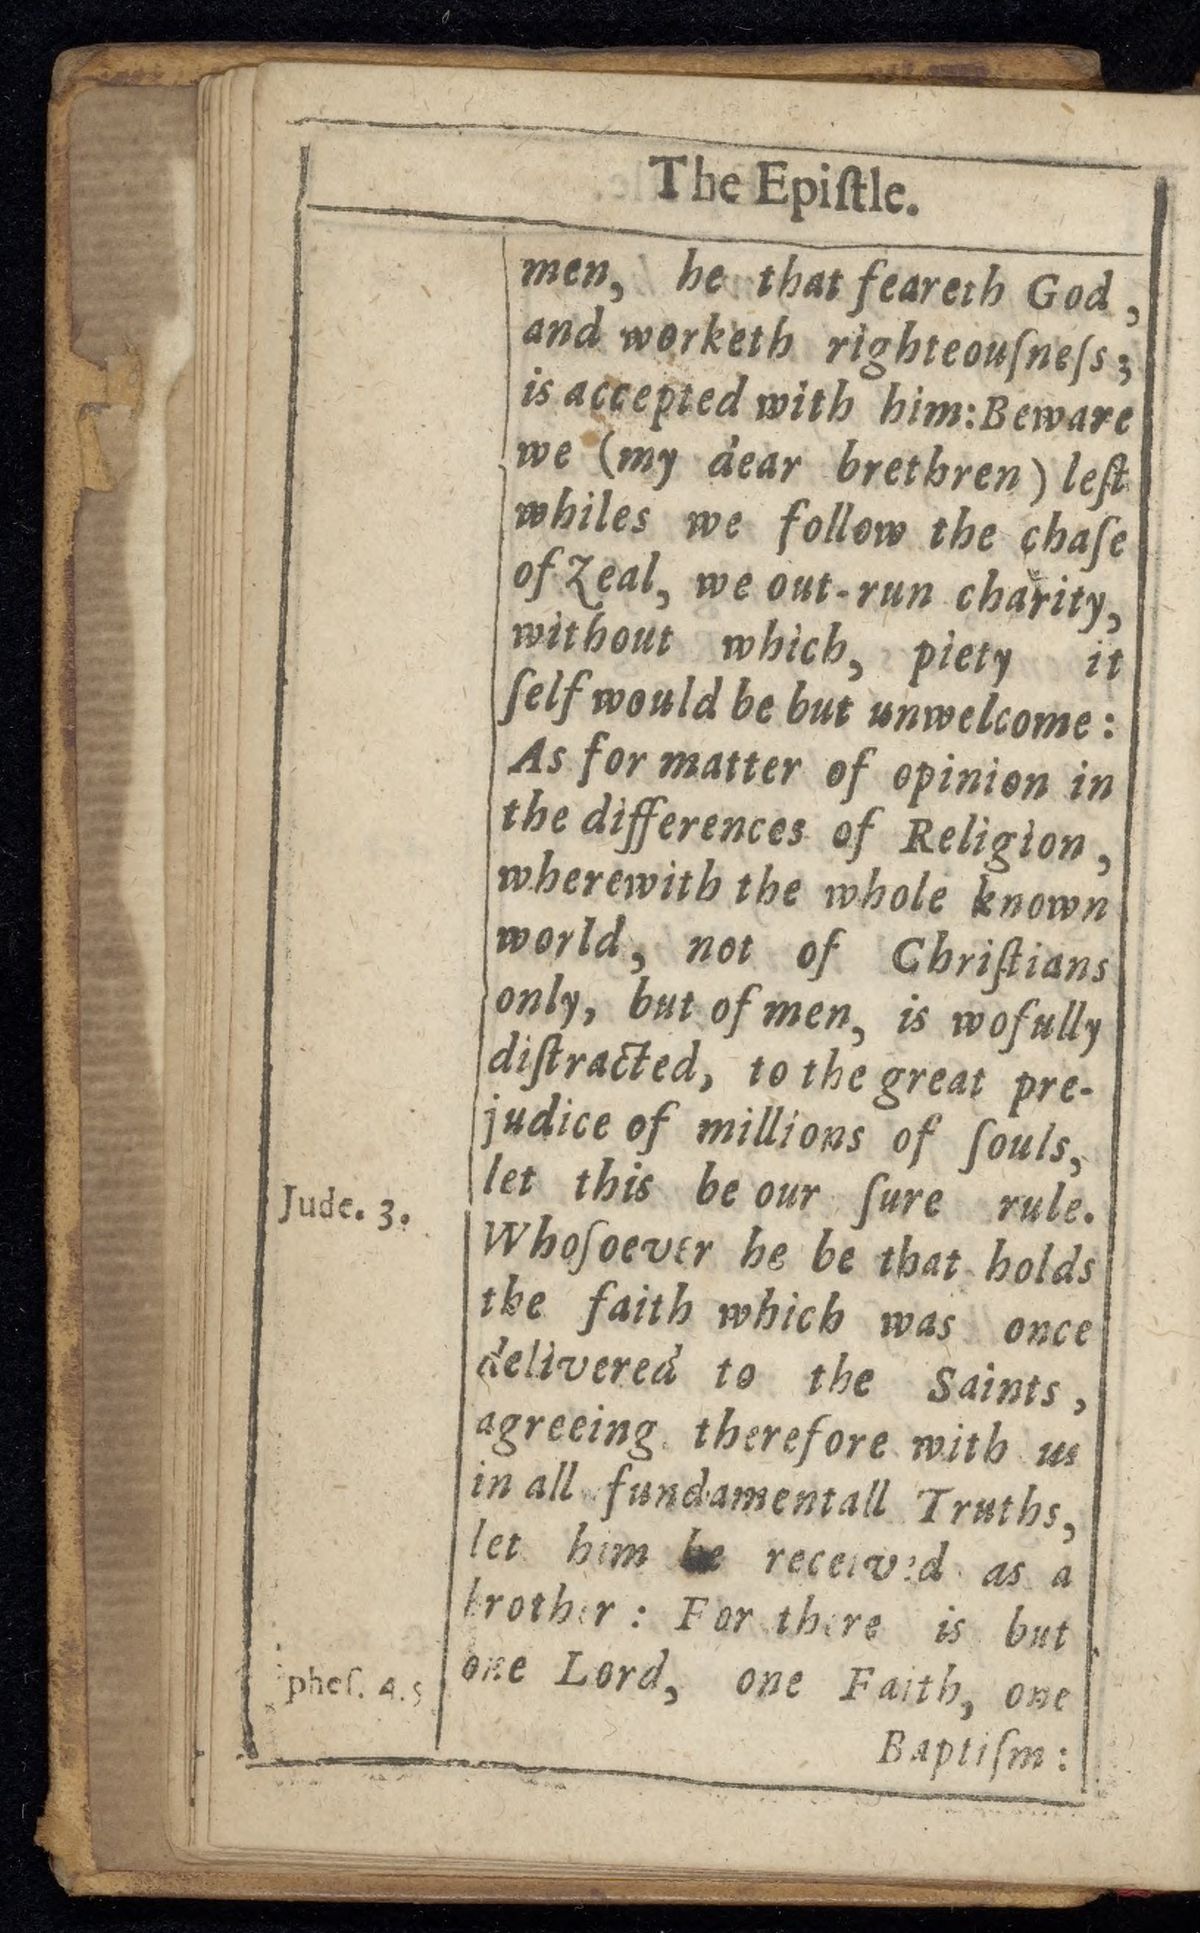 The Epiſtle.
men, he that feareth God,
and worketh righteouſneſs;
is accepted with him: Beware
we (my dear brethren) leſt
whiles we follow the chaſe
of Zeal, we out-run charity,
without which, piety it
ſelf would be but unwelcome:
As for matter of opinion in
the differences of Religion,
wherewith the whole known
world, not of Chriſtians
only, but of men, is wofully
diſtracted, to the great pre-
judice of millions of ſouls,
let this be our ſure rule.
Jude. 3.
Whoſoever he be that holds
the faith which was once
delivered to the Saints,
agreeing therefore with us
in all fundamentall Truths,
let him be received as a
brother: For there is but
one Lord, one Faith, one
pheſ. 4.5
Baptiſm: